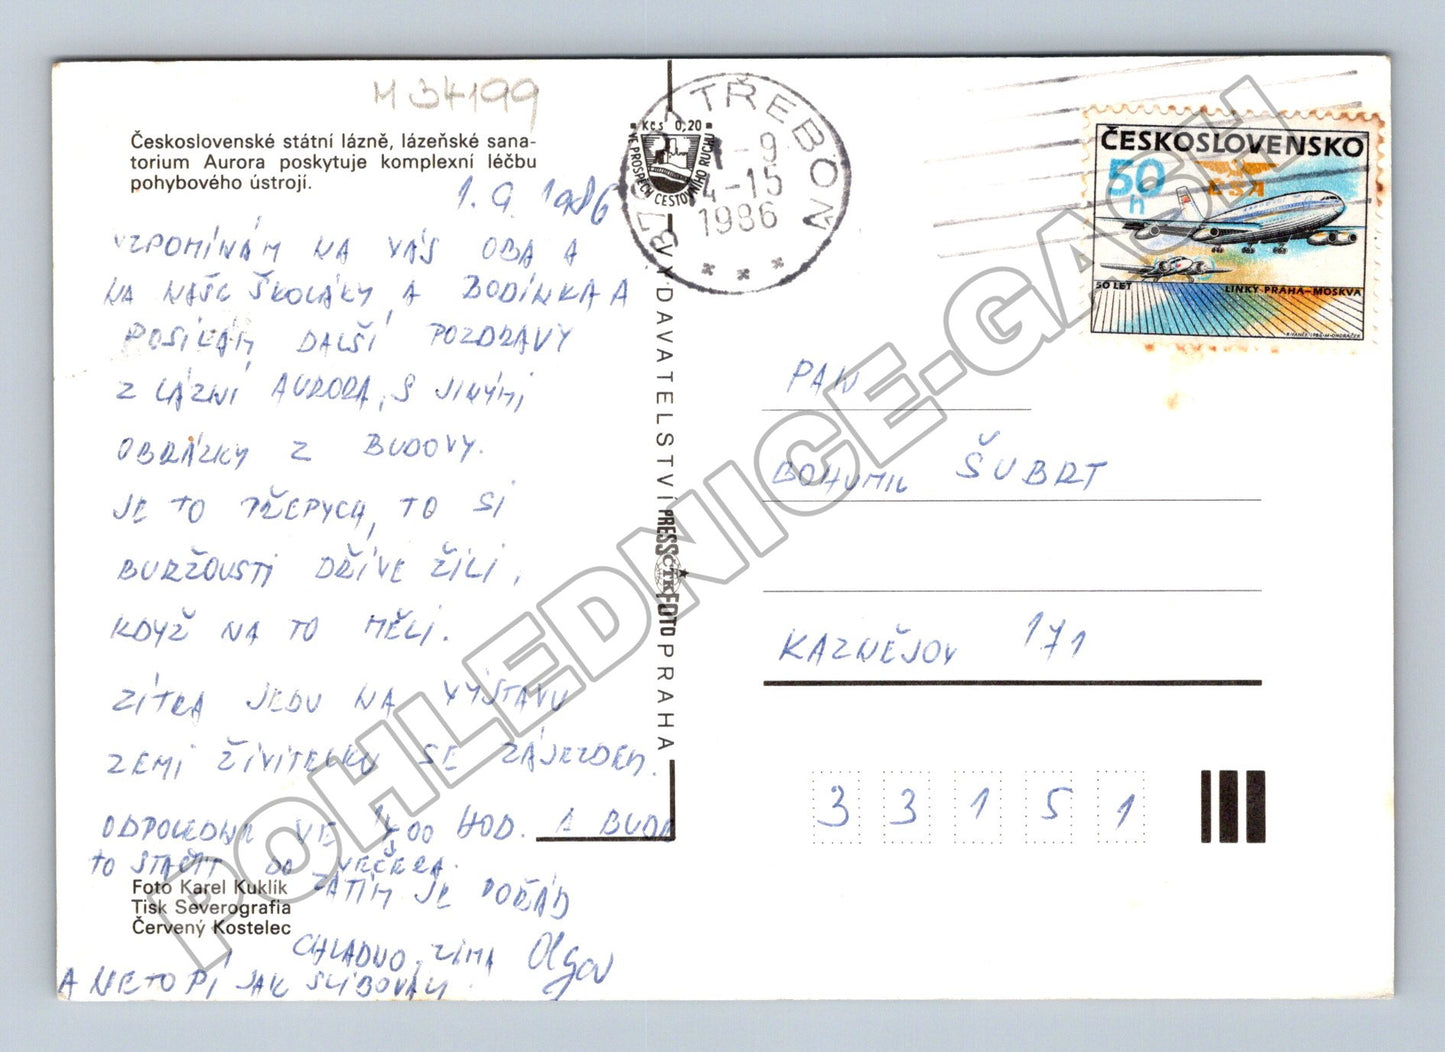 M 34199
Československé státní lázně, lázeňské sana-
torium Aurora poskytuje komplexní léčbu
pohybového ústrojí.
1. 9. 1986
VZPOMÍNÁM NA VÁS OBA A
NA NAŠE ŠKOLÁKY A BODÍNKA A
POSÍLÁM DALŠÍ POZDRAVY
Z LÁZNÍ AURORA, S JINÝMI
OBRÁZKY Z BUDOVY.
JE TO PŘEPYCH, TO SI
BURŽOUSTI DŘÍVE ŽILI,
KDYŽ NA TO MĚLI.
ZÍTRA JEDU NA VÝSTAVU
ZEMI ŽIVITELKU SE ZÁJEZDEM.
ODPOLEDNE VE 00 HOD. A BUDE
TO STAČIT DO VEČERA.
ZATÍM JE POŘÁD
CHLADNO, ZIMA Olga
A NETOPÍ JAK SLIBOVALI
Foto Karel Kuklík
Tisk Severografia
Červený Kostelec
Kčs 0,20
VE PROSPĚCH CESTOVNÍHO RUCHU
VYDAVATELSTVÍ PRESSFOTO PRAHA
ČTK
TŘEBOŇ
-9
4-15
1986
ČESKOSLOVENSKO
50 h
ČSA
50 LET LINKY PRAHA–MOSKVA
PAN
BOHUMIL ŠUBRT
KAZNĚJOV 171
33151
POHLEDNICE-GASH